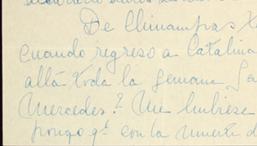 De Chinampas X
cuando regreso a Catalina
allá toda la semana
Mercedes? Me hubiese
pongo q' con la muerte d